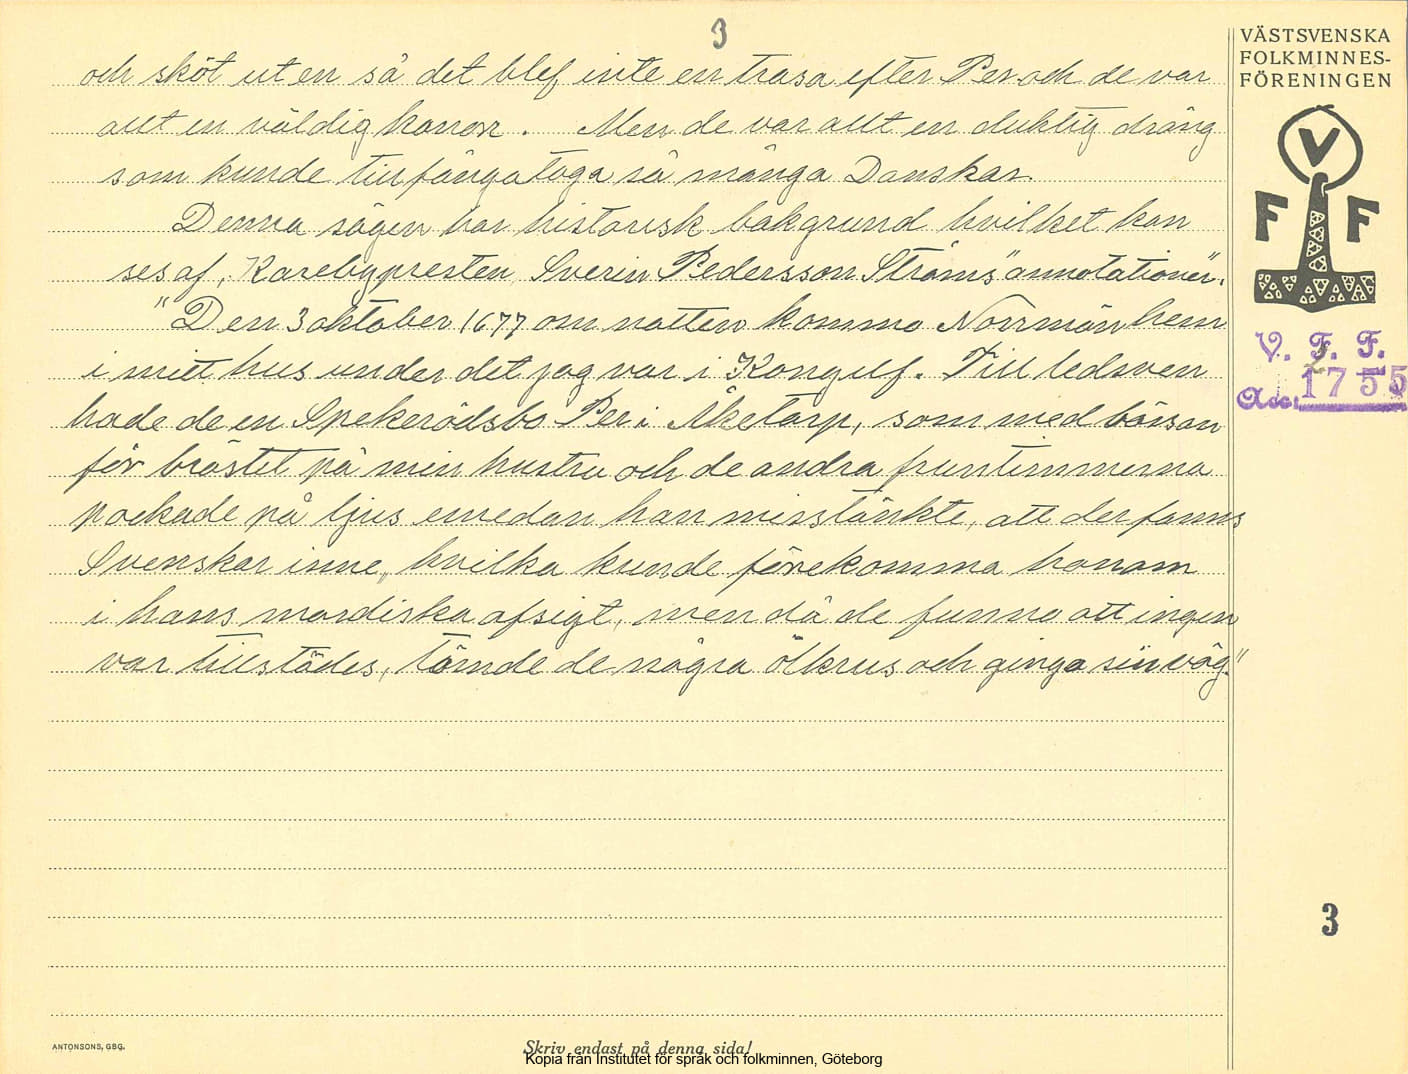 3
och sköt ut en så det blef inte en trasa efter Per och de var
allt en väldig kanon. Men de var allt en duktig dräng
som kunde tillfångataga så många Danskar.
Denna sägen har historisk bakgrund hvilket kan
ses af, Karebypresten Sverin Pedersson Ströms "annotationer".
"Den 3 oktober 1677 om natten kommo Norrmän hem
i mitt hus under det jag var i Kongelf. Till ledsven
hade de en Spekerödsbo Per i Åketorp, som med bössan
för bröstet på min hustru och de andra fruntimmerna
pockade på ljus emedan han misstänkte, att der fanns
Svenskar inne, hvilka kunde förekomma honom
i hans mordiska afsigt, men då de funno att ingen
var tillstädes, tömde de några ölkrus och gingo sin väg."
VÄSTSVENSKA
FOLKMINNES-
FÖRENINGEN
V
F F
V. F. F.
Acc: 1755
3
ANTONSONS, GBG.
Skriv endast på denna sida!
Kopia från Institutet för språk och folkminnen, Göteborg